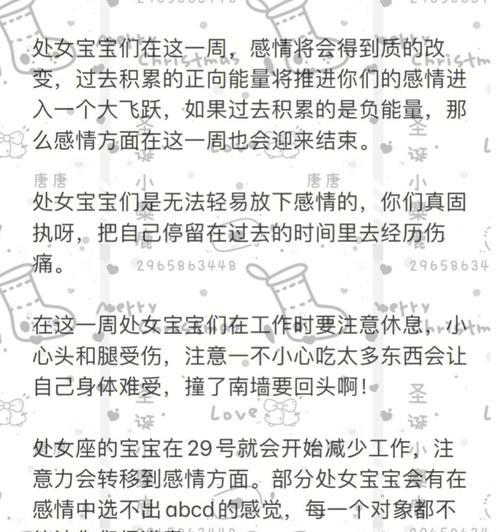 处女宝宝们在这一周，感情将会得到质的改
变，过去积累的正向能量将推进你们的感情进
入一个大飞跃，如果过去积累的是负能量，那
么感情方面在这一周也会迎来结束。
处女宝宝们是无法轻易放下感情的，你们真固
执呀，把自己停留在过去的时间里去经历伤
痛。
2965863448
在这一周处女宝宝们在工作时要注意休息，小
心头和腿受伤，注意一不小心吃太多东西会让
自己身体难受，撞了南墙要回头啊！
Love
处女座的宝宝在29号就会开始减少工作，注
意力会转移到感情方面。部分处女宝宝会有在
感情中选不出abcd的感觉，每一个对象都不